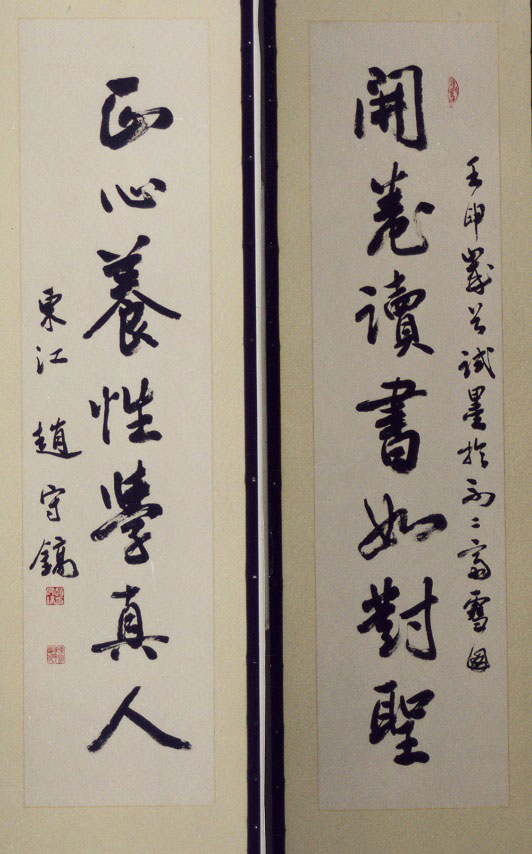 壬申歲首試墨於不二齋雪囱
開卷讀書如對聖
正心養性學真人
東江 趙守鎬